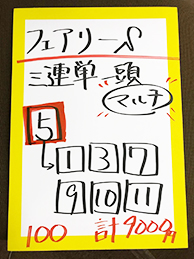 フェアリーS
三連単 一頭
マルチ
5
1 3 7
9 10 11
100 計9000円